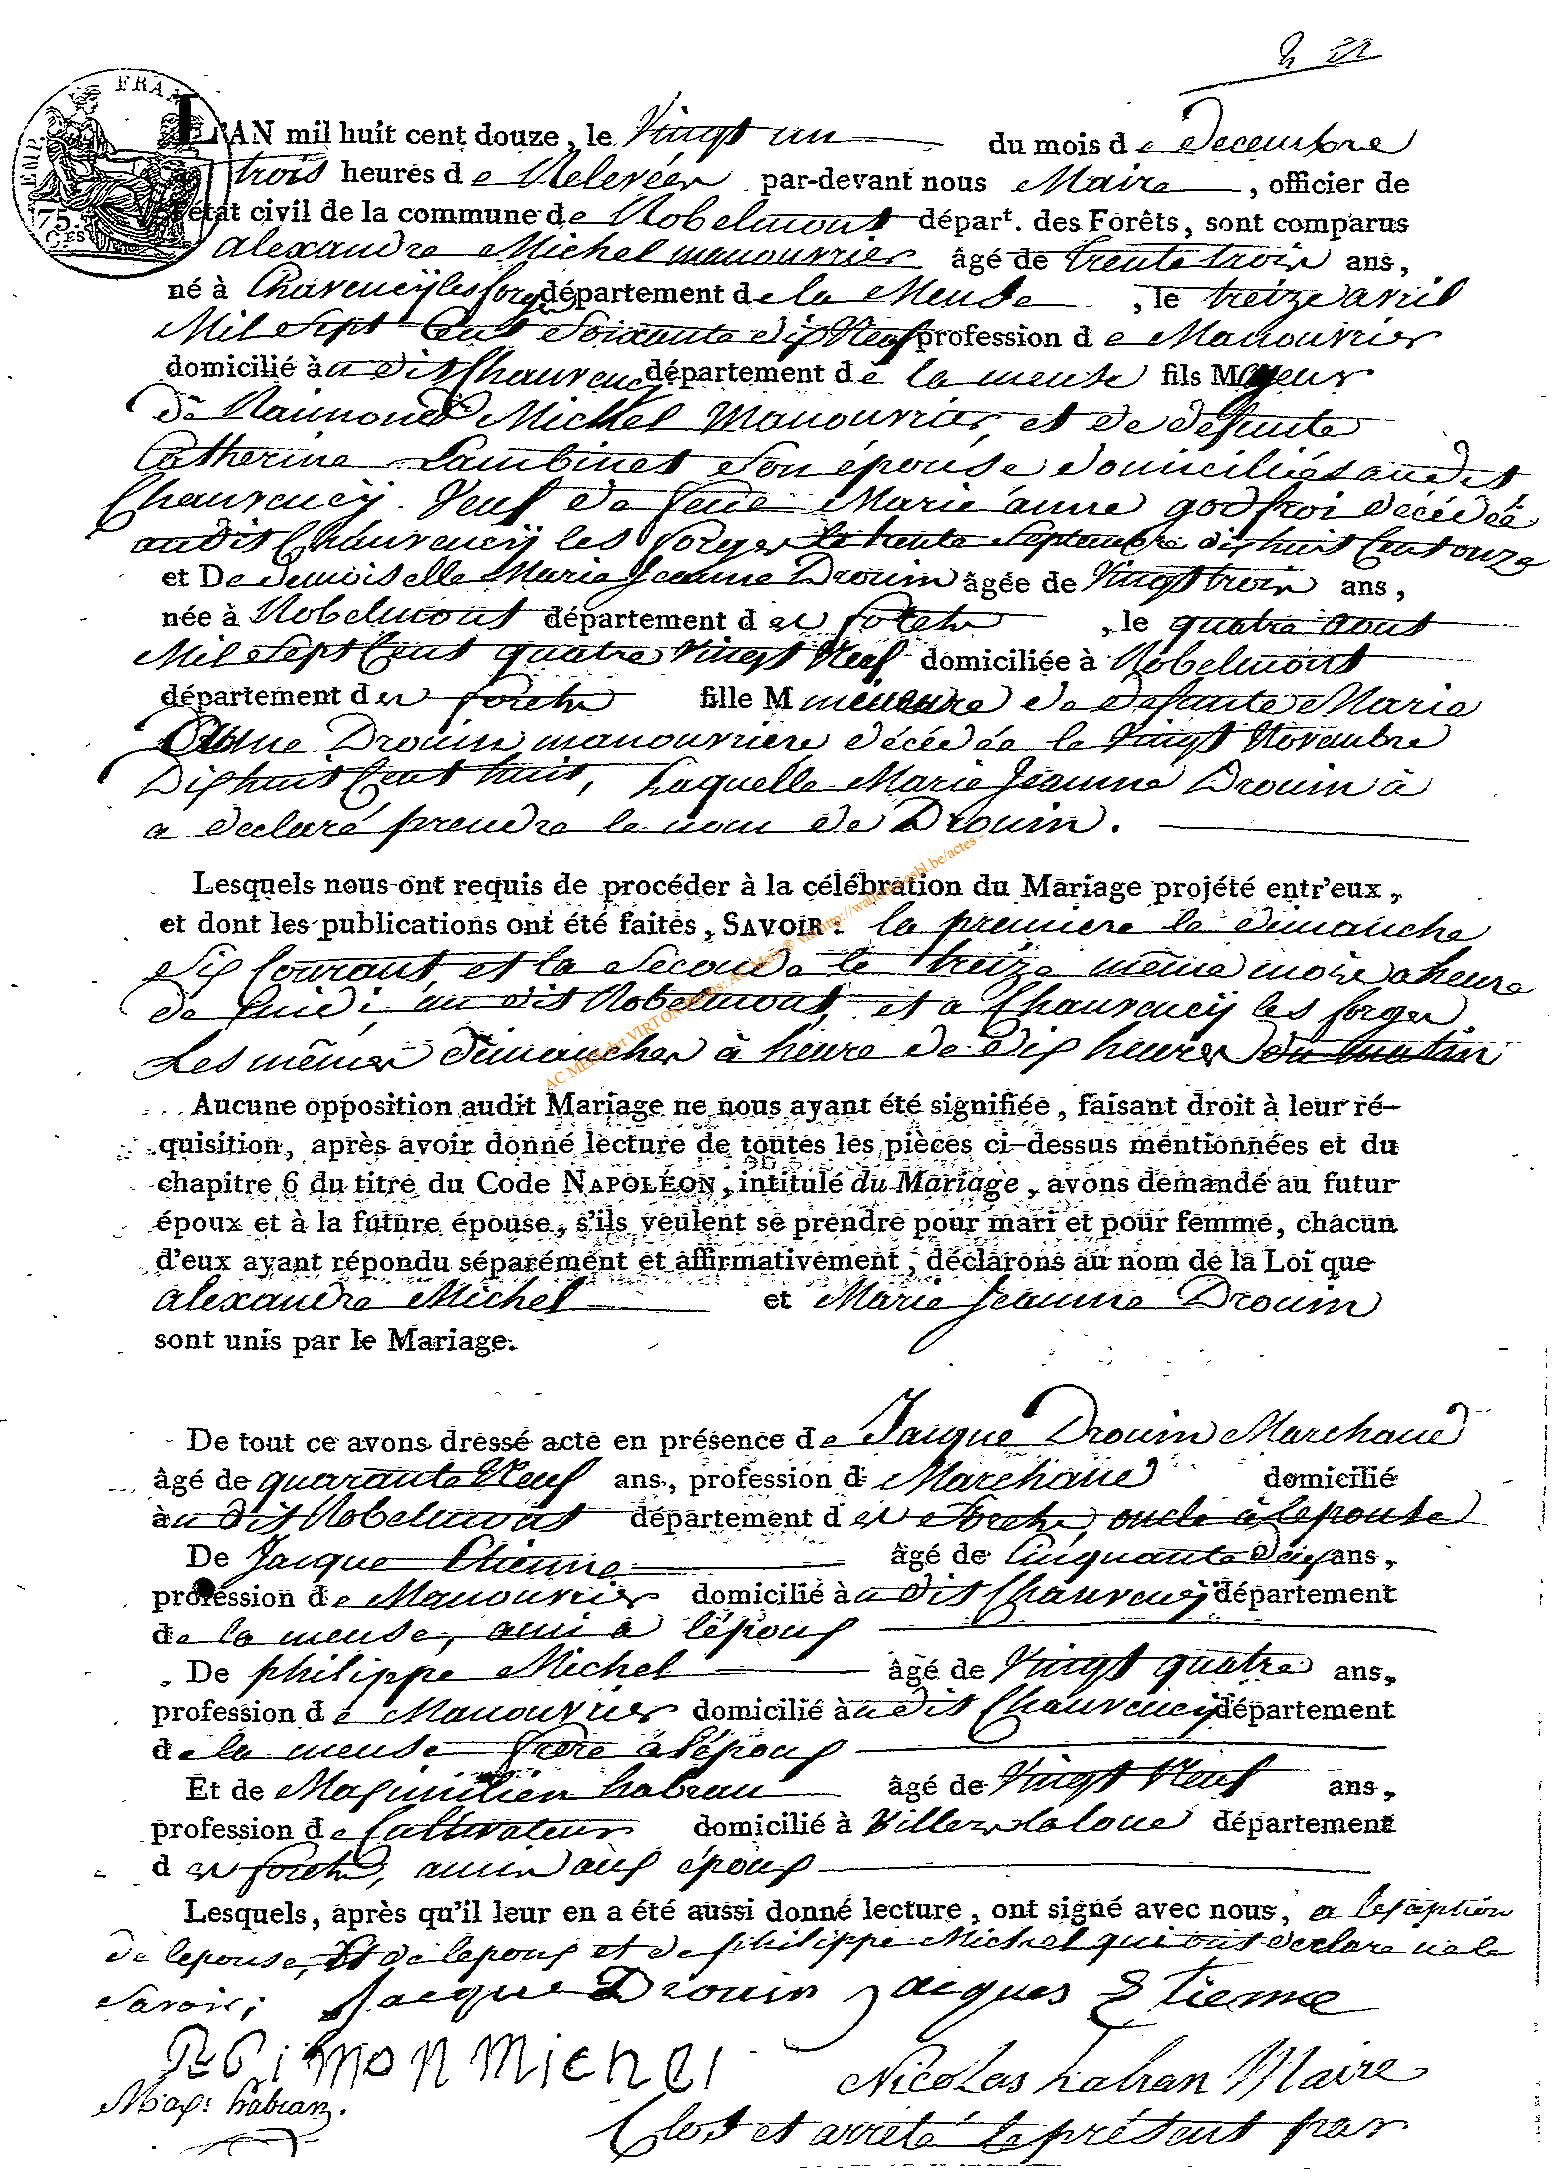 L'AN mil huit cent douze, le Vingt un du mois de Decembre
trois heures de Relevéer par-devant nous Maire, officier de
l'état civil de la commune de Robelmont départ. des Forêts, sont comparus
alexandre Michel manouvrier âgé de trente trois ans,
né à Chavencÿ les forges département de la Meuse, le treize avril
Mil Sept Cent Soixante dix Neuf profession de Manouvrier
domicilié à u dit Chauvency département de la meuse fils Majeur
de Raimond Michel Manouvrier, et de défunte
Catherine Lambinet Son épouse domiciliés audit
Chauvencÿ. Veuf de feue Marie anne godfroi décédée
audit Chauvencÿ les forges le trente Septembre dix huit Cent onze
et De demoiselle Marie Jeanne Drouin âgée de Vingt trois ans,
née à Robelmont département des forêts, le quatre aout
Mil Sept Cent quatre Vingt Neuf domiciliée à Robelmont
département des forêts fille M mineure de défunte Marie
Anne Drouin manouvriere décédée le Vingt Novembre
Dix huit Cent huit, Laquelle Marie Jeanne Drouin à
a declaré prendre le nom de Drouin.
Lesquels nous ont requis de procéder à la célébration du Mariage projété entr'eux,
et dont les publications ont été faites, SAVOIR: la premiere le dimanche
Six Courant, et la Seconde le treize même mois a heure
de midi, au dit Robelmont, et a Chauvencÿ les forges
Les mêmes dimanches à heure de dix heures du matin
Aucune opposition audit Mariage ne nous ayant été signifiée, faisant droit à leur ré-
quisition, après avoir donné lecture de toutes les pièces ci-dessus mentionnées et du
chapitre 6 du titre du Code NAPOLÉON, intitulé du Mariage, avons demandé au futur
époux et à la future épouse, s'ils veulent se prendre pour mari et pour femme, chacun
d'eux ayant répondu séparément et affirmativement, déclarons au nom de la Loi que
alexandre Michel et Marie Jeanne Drouin
sont unis par le Mariage.
De tout ce avons dressé acte en présence de Jacque Drouin Marchand
âgé de quarante Neuf ans, profession de Marchand domicilié
àu dit Robelmont département des Forêts, oncle à lepouse
De Jacque Etienne âgé de Cinquante deux ans,
profession de Manouvrier domicilié àu dit Chauvencÿ département
de la meuse, ami à lépoux
De philippe Michel âgé de Vingt quatre ans,
profession de Manouvrier domicilié àu dit Chauvencÿ département
de la meuse frere a lépoux
Et de Maximilien habran âgé de Vingt Neuf ans,
profession de Cultivateur domicilié à Villers la loue département
des forêts, amis aux époux
Lesquels, après qu'il leur en a été aussi donné lecture, ont signé avec nous, a lexaption
de lepouse, Et de lepoux et de philippe Michel qui ont declare ne le
Savoir; Jacque Drouin Jacques Etienne
Reimon Michel
Nicolas habran Maire
Max: habran.
Clos et arrêté le présent par